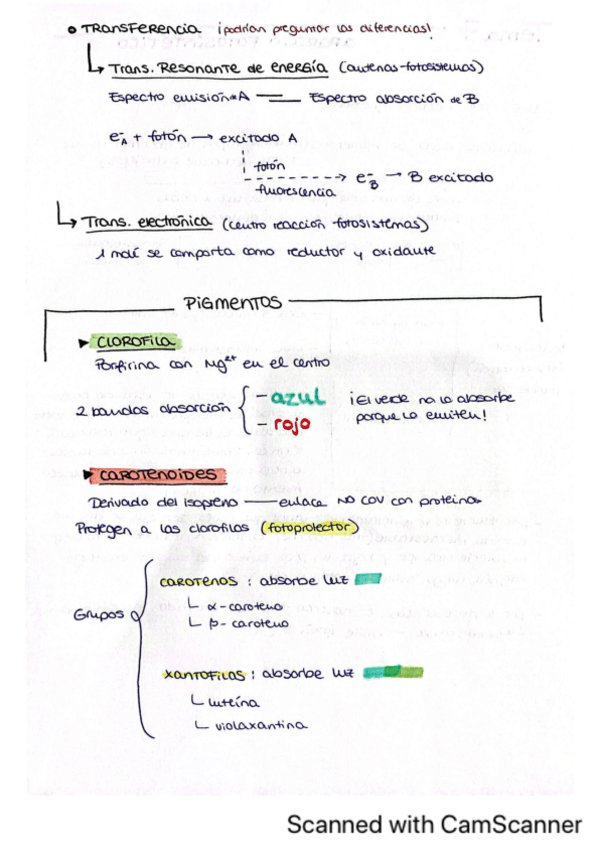 TRANSFERENCIA ¡podrían preguntar las diferencias!
Trans. Resonante de energía (antenas-fotosistemas)
Espectro emisión A — Espectro absorción de B
e⁻A + fotón → excitado A
fotón
fluorescencia
e⁻B → B excitado
Trans. electrónica (centro reacción fotosistemas)
1 molé se comporta como reductor y oxidante
PIGMENTOS
CLOROFILA
Porfirina con Mg²⁺ en el centro
2 bandas absorción
- azul
- rojo
¡El verde no lo absorbe
porque lo emiten!
CAROTENOIDES
Derivado del isopreno — enlace NO COV con proteínas
Protegen a las clorofilas (fotoprotector)
Grupos
CAROTENOS: absorbe luz
α-caroteno
β-caroteno
XANTOFILAS: absorbe luz
luteína
violaxantina
Scanned with CamScanner